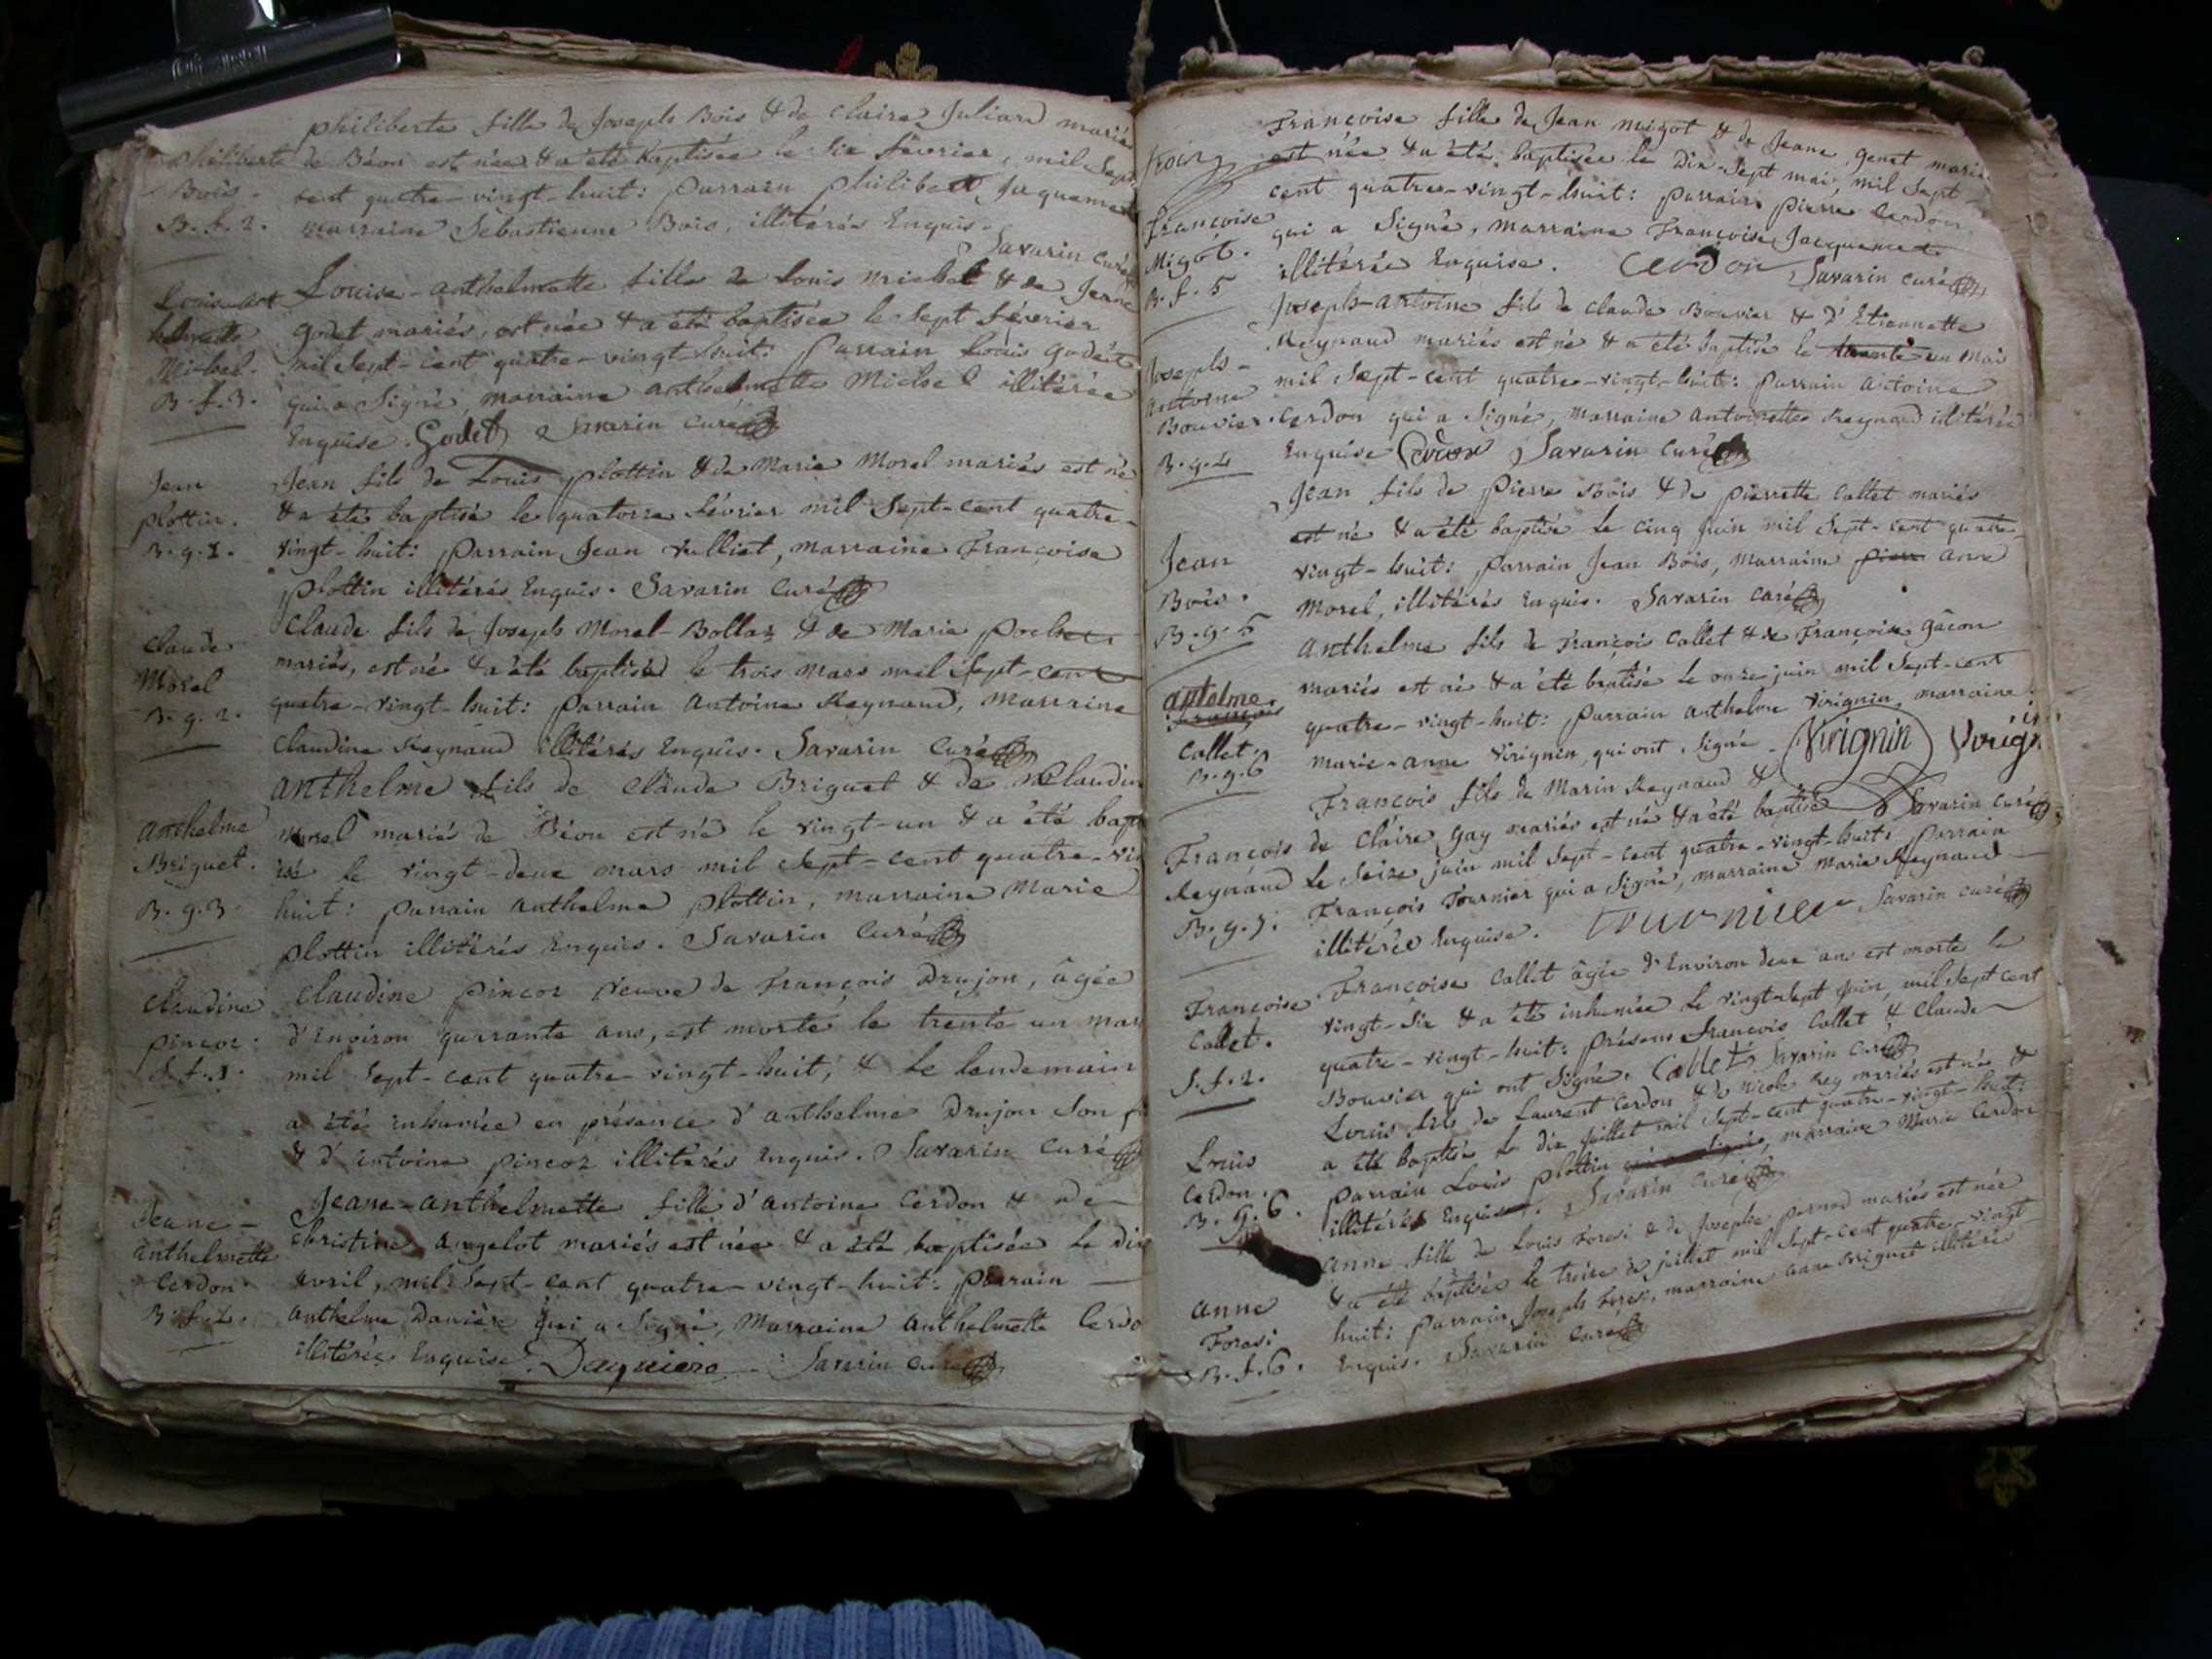 philiberte fille de Joseph Bois & de Claire Juliand mariés
philiberte de Béon est née & a été baptisée le six février, mil sept
Bois. cent quatre-vingt-huit: parrain philibert Jaquemet
B. f. 2. marraine Sebastienne Bois, illitérés Enquis.
Savarin curé
Louise-ant Louise-anthelmette fille de Louis Michel & de Jeane
helmette godet mariés, est née & a été baptisée le sept février
Michel. mil sept-cent quatre-vingt-huit: parrain Louis godet
B. f. 3. qui a signé, marraine anthelmette Michel illitérée
Enquise. Godet Savarin curé
Jean Jean fils de Louis plottin & de Marie Morel mariés est né
plottin. & a été baptisé le quatorze février mil sept-cent quatre-
B. g. 1. vingt-huit: parrain Jean Vulliet, marraine Françoise
plottin illitérés Enquis. Savarin curé
Claude Claude fils de Joseph Morel-Bollaz & de Marie
Morel mariés, est né & a été baptisé le trois mars mil sept-cent
B. g. 2. quatre-vingt-huit: parrain Antoine Reynaud, marraine
Claudine Reynaud illitérés Enquis. Savarin curé
anthelme fils de Claude Briguet & de Claudin
anthelme Morel mariés de Béon est né le vingt-un & a été bapt
Briguet. isé le vingt-deux mars mil sept-cent quatre-vin
B. g. 3. huit: parrain anthelme plottin, marraine Marie
plottin illitérés Enquis. Savarin curé
Claudine Claudine pincoz veuve de François Drujon, âgée
pincoz. d'Environ quarante ans, est morte le trente un mar
S. f. 1. mil sept-cent quatre-vingt-huit, & le lendemain
a été inhumée en présence d'anthelme Drujon son
& d'antoine pincoz illitérés Enquis. Savarin curé
Jeane- Jeane-anthelmette fille d'antoine Cerdon & de
anthelmette Christine angelot mariés est née & a été baptisée le dix
Cerdon avril, mil sept-cent quatre-vingt-huit: parrain
B. f. 4. anthelme Danière qui a signé, Marraine anthelmette Cerdo
illitérée Enquise. Savarin curé
Françoise fille de Jean Migot & de Jeane genet mariés
est née & a été baptisée le Dix-sept mai, mil sept-
cent quatre-vingt-huit: parrain pierre Cerdon
Françoise qui a signé, marraine Françoise Jacquemet
Migot. illitérée Enquise. Cerdon Savarin curé
B. f. 5
Joseph-antoine fils de Claude Bouvier & d'Etiennette
Joseph- Reynaud mariés est né & a été baptisé le trente un Mai
antoine mil sept-cent quatre-vingt-huit: parrain antoine
Bouvier. Cerdon qui a signé, marraine antoinette Reynaud illitérée
B. g. 4 Enquise Cerdon Savarin curé
Jean fils de pierre Bois & de pierrette Collet mariés
Jean est né & a été baptisé le cinq juin mil sept-cent quatre-
Bois. vingt-huit: parrain Jean Bois, marraine pierr anne
B. g. 5 Morel, illitérés Enquis. Savarin curé
anthelme fils de François Collet & de Françoise gâcon
antelme mariés est né & a été batisé le onze juin mil sept-cent
françois quatre-vingt-huit: parrain anthelme Virignin, marraine
Collet. marie-anne Virignin, qui ont signé. Virignin Virign
B. g. 6
François fils de Marin Reynaud &
François de Claire gay mariés est né & a été baptisé Savarin curé
Reynaud le seize juin mil sept-cent quatre-vingt-huit: parrain
B. g. 7. François Tournier qui a signé, marraine Marie Reynaud
illitérée Enquise. Tournier Savarin curé
Françoise Françoise Collet âgée d'Environ deux ans est morte le
Collet. vingt-six & a été inhumée le vingt-sept juin, mil sept cent
S. f. 2. quatre-vingt-huit: présens François Collet & Claude
Bouvier qui ont signé. Collet Savarin curé
Louis Louis fils de Laurent Cerdon & de Nicole Rey mariés est née &
Cerdon. a été baptisé le dix juillet mil sept-cent quatre-vingt-huit:
B. g. 6. parrain Louis plottin qui a signé, marraine Marie Cerdon
illitérés Enquis. Savarin curé
anne fille de Louis Foresi & de Josephe pernod mariés est née
anne & a été baptisée le treize de juillet mil sept-cent quatre-vingt
Foresi huit: parrain Joseph, marraine anne Briguet illitérés
B. f. 6. Enquis. Savarin curé